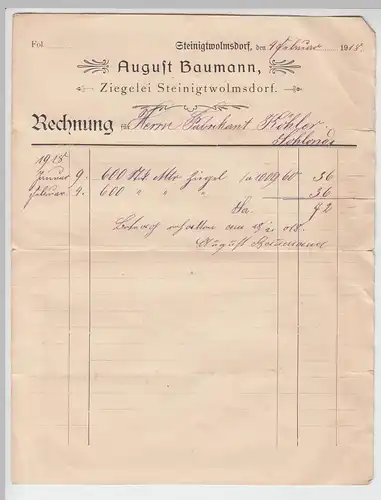 Fol.
Steinigtwolmsdorf, den 9 Februar 1918.
August Baumann,
Ziegelei Steinigtwolmsdorf.
Rechnung für Herrn Fabrikant Köhler
1918
Januar 9. 600 Stk Ziegel 60 36
Februar 9. 600 " " " 36
Sa. 72
Betrag erhalten am
August Baumann